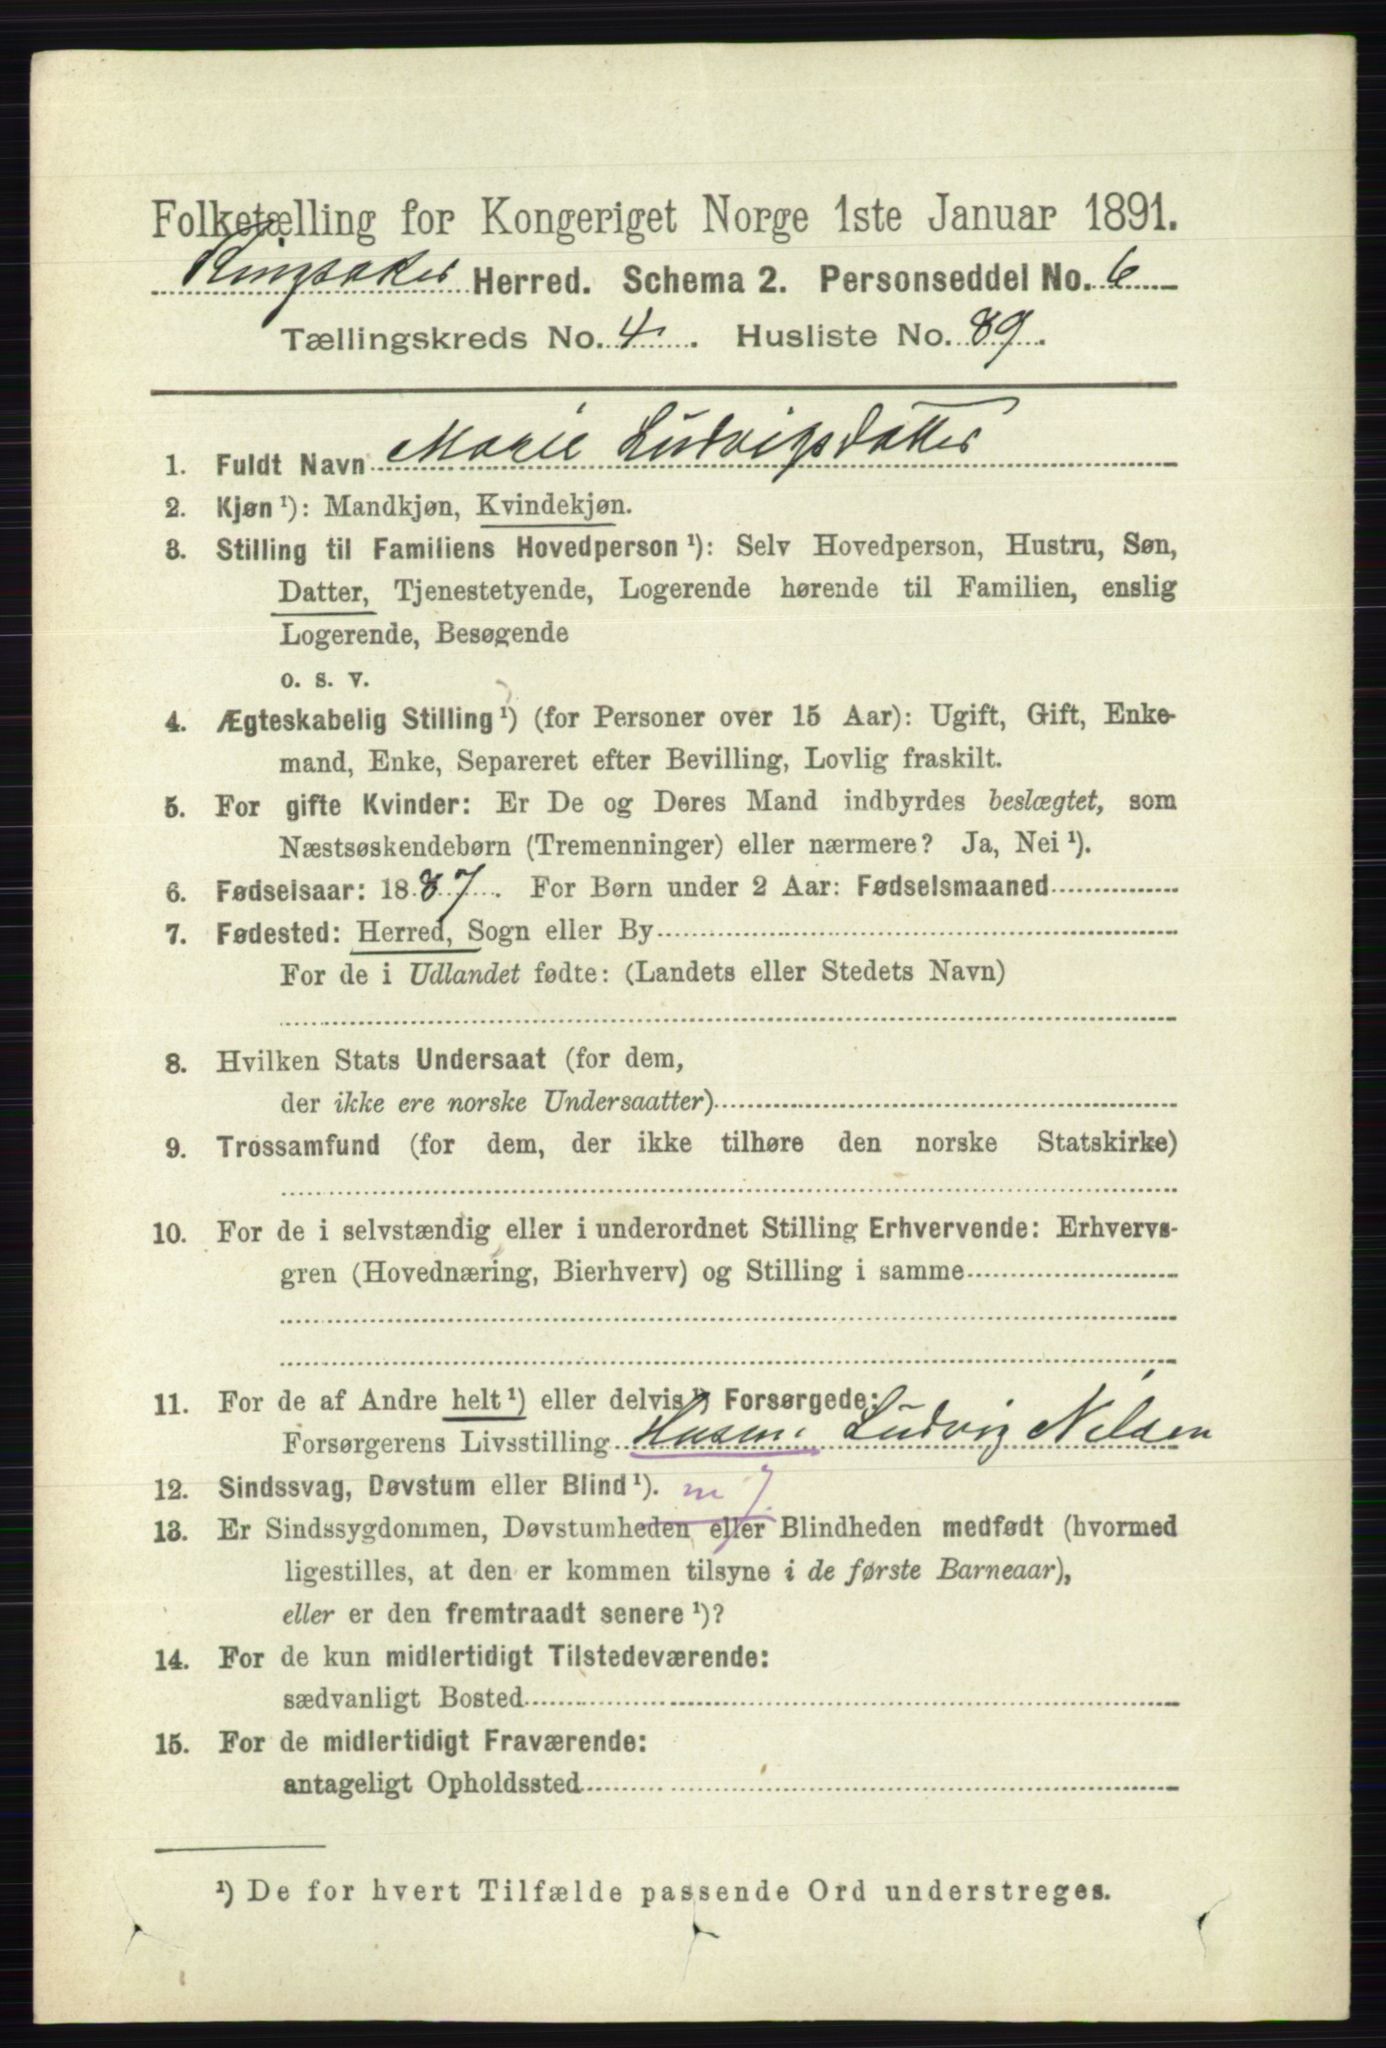 Folketælling for Kongeriget Norge 1ste Januar 1891.
Ringsaker Herred. Schema 2. Personseddel No. 6
Tællingskreds No. 4. Husliste No. 89.
1. Fuldt Navn Marie Ludvigsdatter
2. Kjøn ¹): Mandkjøn, Kvindekjøn.
3. Stilling til Familiens Hovedperson ¹): Selv Hovedperson, Hustru, Søn,
Datter, Tjenestetyende, Logerende hørende til Familien, enslig
Logerende, Besøgende
o. s. v.
4. Ægteskabelig Stilling ¹) (for Personer over 15 Aar): Ugift, Gift, Enke-
mand, Enke, Separeret efter Bevilling, Lovlig fraskilt.
5. For gifte Kvinder: Er De og Deres Mand indbyrdes beslægtet, som
Næstsøskendebørn (Tremenninger) eller nærmere? Ja, Nei ¹).
6. Fødselsaar: 1887. For Børn under 2 Aar: Fødselsmaaned
7. Fødested: Herred, Sogn eller By
For de i Udlandet fødte: (Landets eller Stedets Navn)
8. Hvilken Stats Undersaat (for dem,
der ikke ere norske Undersaatter)
9. Trossamfund (for dem, der ikke tilhøre den norske Statskirke)
10. For de i selvstændig eller i underordnet Stilling Erhvervende: Erhvervs-
gren (Hovednæring, Bierhverv) og Stilling i samme
11. For de af Andre helt ¹) eller delvis ¹) Forsørgede:
Forsørgerens Livsstilling Husm. Ludvig Nilsen
12. Sindssvag, Døvstum eller Blind ¹).
13. Er Sindssygdommen, Døvstumheden eller Blindheden medfødt (hvormed
ligestilles, at den er kommen tilsyne i de første Barneaar),
eller er den fremtraadt senere ¹)?
14. For de kun midlertidigt Tilstedeværende:
sædvanligt Bosted
15. For de midlertidigt Fraværende:
antageligt Opholdssted
¹) De for hvert Tilfælde passende Ord understreges.